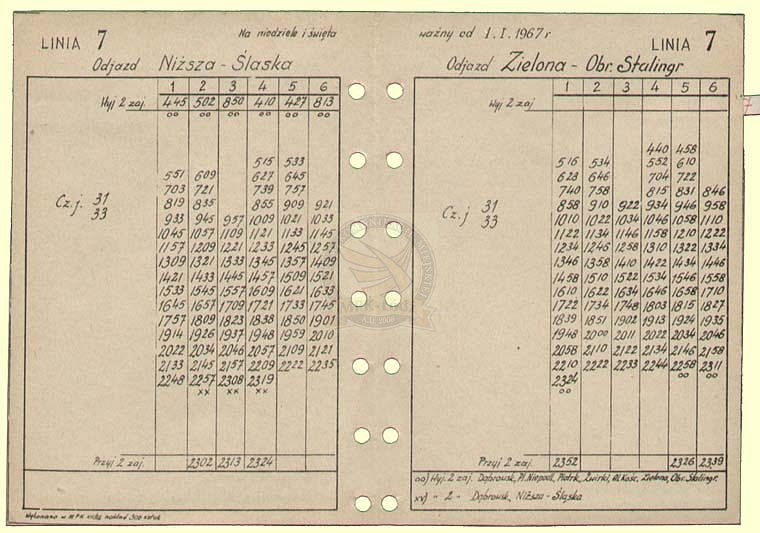 LINIA 7
Na niedziele i święta
Odjazd Niższa - Śląska
1 2 3 4 5 6
Wyj 2 zaj. 445 502 850 410 427 813
oo oo oo oo oo oo
515 533
551 609 627 645
703 721 739 757
819 835 855 909 921
933 945 957 1009 1021 1033
Cz. j. 31
33
1045 1057 1109 1121 1133 1145
1157 1209 1221 1233 1245 1257
1309 1321 1333 1345 1357 1409
1421 1433 1445 1457 1509 1521
1533 1545 1557 1609 1621 1633
1645 1657 1709 1721 1733 1745
1757 1809 1823 1838 1850 1901
1914 1926 1937 1948 1959 2010
2022 2034 2046 2057 2109 2121
2133 2145 2157 2209 2222 2235
2248 2257 2308 2319
xx xx xx
Przyj 2 zaj. 2302 2313 2324
Wykonano w MPK
ważny od 1.I.1967 r
LINIA 7
Odjazd Zielona - Obr. Stalingr
1 2 3 4 5 6
Wyj 2 zaj
440 458
516 534 552 610
628 646 704 722
740 758 815 831 846
858 910 922 934 946 958
1010 1022 1034 1046 1058 1110
Cz. j 31
33
1122 1134 1146 1158 1210 1222
1234 1246 1258 1310 1322 1334
1346 1358 1410 1422 1434 1446
1458 1510 1522 1534 1546 1558
1610 1622 1634 1646 1658 1710
1722 1734 1748 1803 1815 1827
1839 1851 1902 1913 1924 1935
1948 2000 2011 2022 2034 2046
2058 2110 2122 2134 2146 2158
2210 2222 2233 2244 2258 2311
oo oo
2324
oo
Przyj 2 zaj. 2352 2326 2339
oo) Wyj. 2 zaj. Dąbrowsk, Pl. Niepodl, Piotrk, Żwirki, Al. Kośc, Zielona, Obr. Stalingr.
xx) " 2 - Dąbrowsk, Niższa - Śląska
7